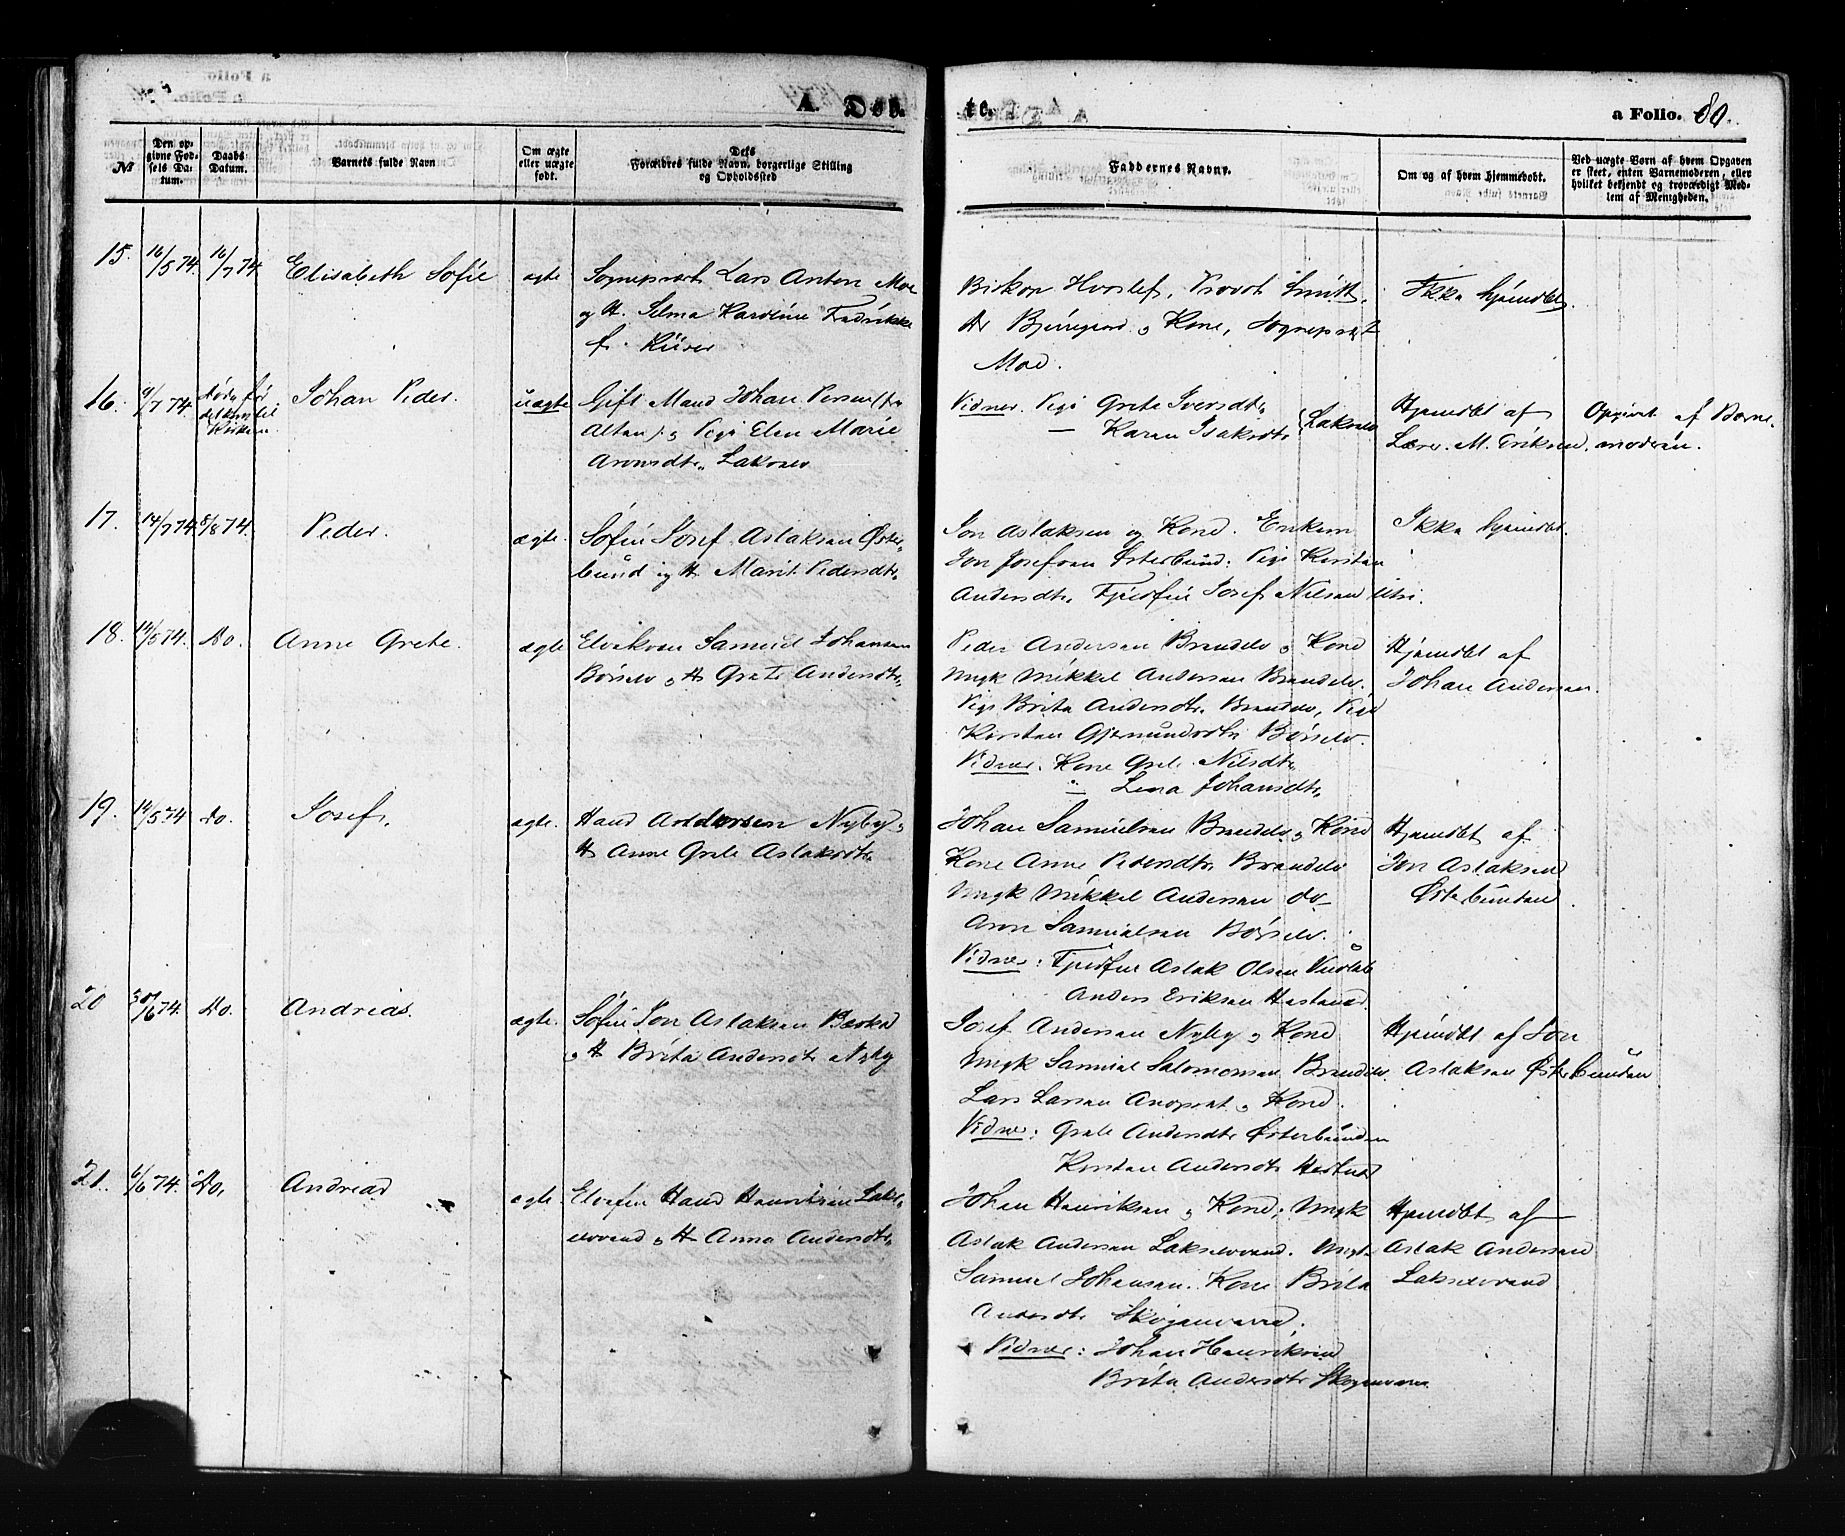 A. Døb- te. a Folio. 80.
№ Den opgivne Fødsels Datum. Daabs Datum. Barnets fulde Navn Om ægte eller uægte født. Dets Forældres fulde Navn, borgerlige Stilling og Opholdssted Faddernes Navne. Om og af hvem hjemmedøbt. Ved uægte Børn af hvem Opgaven er skeet, enten Barnemoderen, eller hvilket bekjendt og troværdigt Medlem af Menigheden.
15. 16/5 74. 16/7 74. Elisabeth Sofie ægte Sognepræst Lars Anton Moe
og H. Selma Karoline Fredrikke
f.
Biskop Hvoslef, Provst Smitt,
Bjerregaard og Kone, Sogneprest
Moe.
Ikke hjemdbt.
16. 9/7 74. Johan Peder. uægte Gift Mand Johan Persen fra
Alten og Pige Elen Marie
Aronsdtr. Lakselv
Vidner. Pige Grete Iversdtr.
— Karen Isaksdtr. Lakselv
Hjemdbt af
Lærer M. Eriksen.
Opgivet af Barne-
moderen.
17. 14/7 74. 8/8 74. Peder. ægte. Søfin Josef Aslaksen Øster-
bund og H. Marit Pedersdtr.
Jon Aslaksen og Kone.
Jon Josefsen Østerbund. Pige Kirsten
Andersdtr. Fjeldfin Josef Nilsen Utsi.
Ikke hjemdbt.
18. 14/5 74. Do. Anne Grete. ægte Elvekvæn Samuel Johansen
Børselv og H. Grete Andersdtr.
Peder Andersen Brændelv og Kone
Ungk Mikkel Andersen Brændelv.
Pige Brita Andersdtr. Brændelv, Pige
Kirsten Gjermundsdtr. Børselv.
Vidner. Kone Grete Nilsdtr.
" Lena Johansdtr.
Hjemdbt af
Johan Andersen.
19. 14/5 74 Do. Josef. ægte. Hans Andersen Nyby og
H. Anne Grete Aslaksdtr.
Johan Samuelsen Brændelv og Kone
Kone Anne Pedersdtr. Brændelv
Ungk Mikkel Andersen do
Aron Samuelsen Børselv.
Vidner: Fjeldfin Aslak Olsen
Anders Eriksen
Hjemdbt af
Jon Aslaksen
Østerbunden.
20 30/6 74. Do. Andreas. ægte. Søfin Jon Aslaksen
og H. Brita Andersdtr. Nyby
Josef Andersen Nyby og Kone
Ungk Samuel Salomonsen Brændelv.
Lars Larsen og Kone.
Vidner: Grete Andersdtr. Østerbunden
Kirsten Andersdtr.
Hjemdbt af Jon
Aslaksen Østerbunden
21. 6/6 74. Do. Andreas ægte. Elvefin Hans Henriksen Laks-
elvvand og H. Anna Andersdtr.
Johan Henriksen og Kone, Ungk
Aslak Andersen Lakselvvand. Ungk
Samuel Johansen. Kone Brita
Andersdtr. Skoganvarre.
Vidner: Johan Henriksen
Brita Andersdtr. Skoganvarre
Hjemdbt af
Aslak Andersen
Lakselvvand